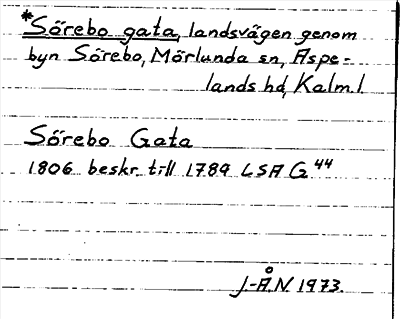 *Sörebo gata, landsvägen genom
byn Sörebo, Mörlunda sn, Aspe-
lands hd, Kalm. l.
Sörebo Gata
1806 beskr. till 1789 LSA G 44
J.-Å.N. 1973.